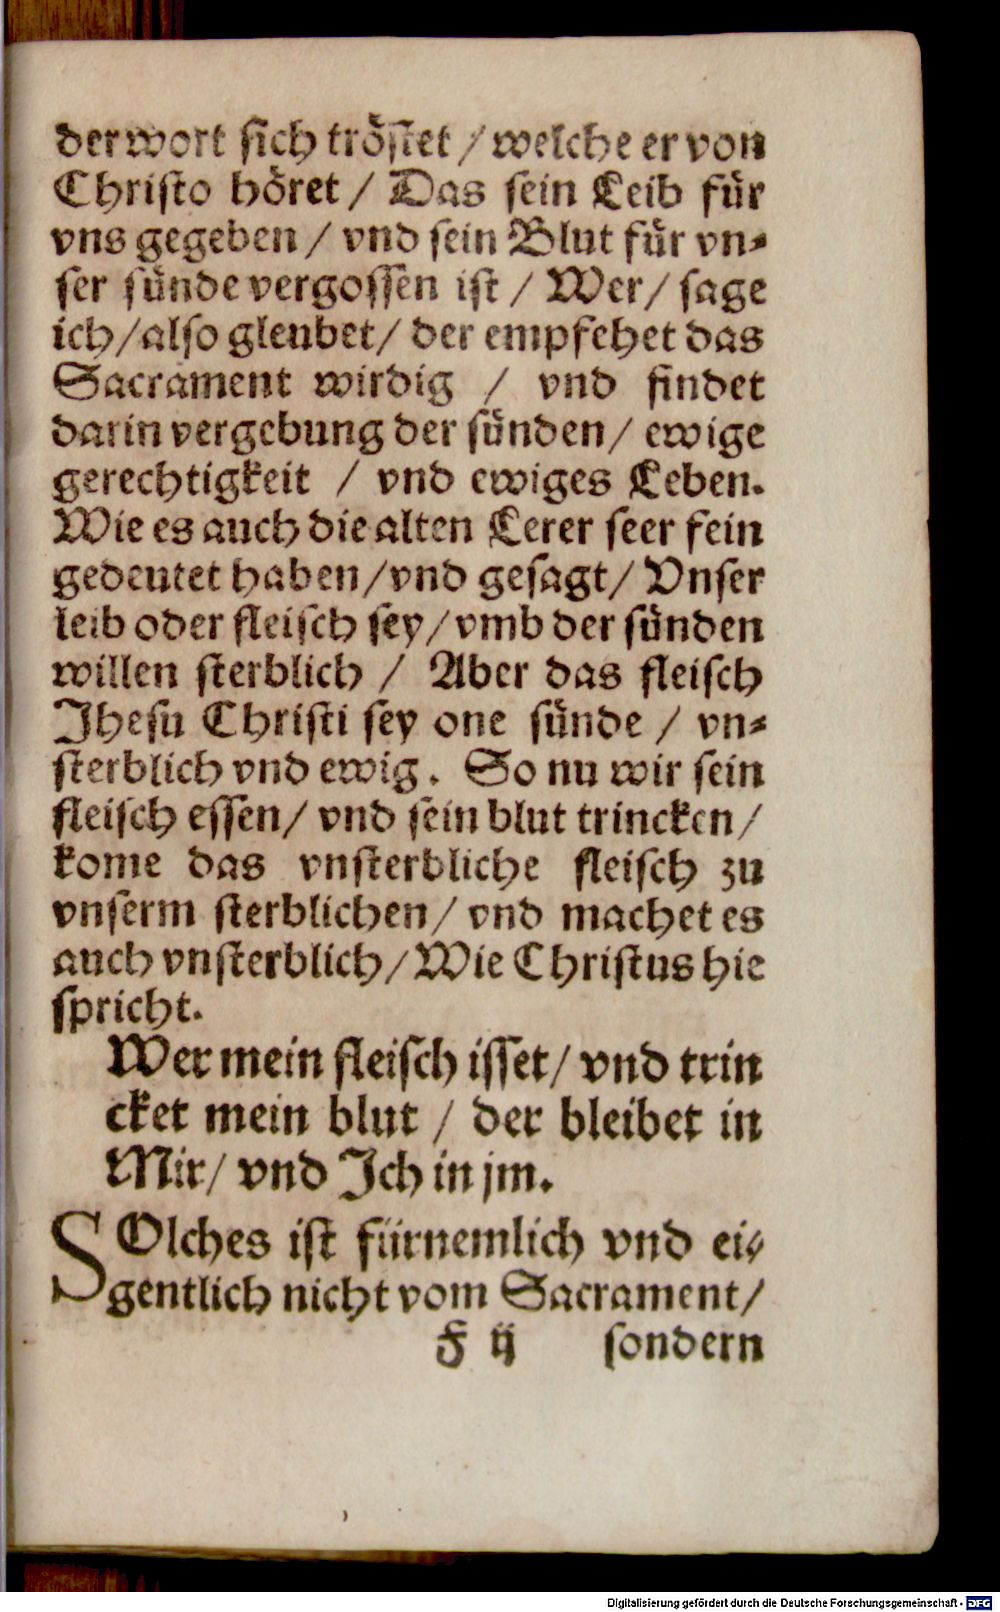 der wort sich tröstet / welche er von
Christo höret / Das sein Leib für
vns gegeben / vnd sein Blut für vn⸗
ser sünde vergossen ist / Wer / sage
ich / also gleubet / der empfehet das
Sacrament wirdig / vnd findet
darin vergebung der sünden / ewige
gerechtigkeit / vnd ewiges Leben.
Wie es auch die alten Lerer seer fein
gedeutet haben / vnd gesagt / Vnser
leib oder fleisch sey / vmb der sünden
willen sterblich / Aber das fleisch
Jhesu Christi sey one sünde / vn⸗
sterblich vnd ewig. So nu wir sein
fleisch essen / vnd sein blut trincken /
kome das vnsterbliche fleisch zu
vnserm sterblichen / vnd machet es
auch vnsterblich / Wie Christus hie
spricht.
Wer mein fleisch isset / vnd trin
cket mein blut / der bleibet in
Mir / vnd Jch in jm.
SOlches ist fürnemlich vnd ei⸗
gentlich nicht vom Sacrament /
F ij sondern
Digitalisierung gefördert durch die Deutsche Forschungsgemeinschaft - DFG